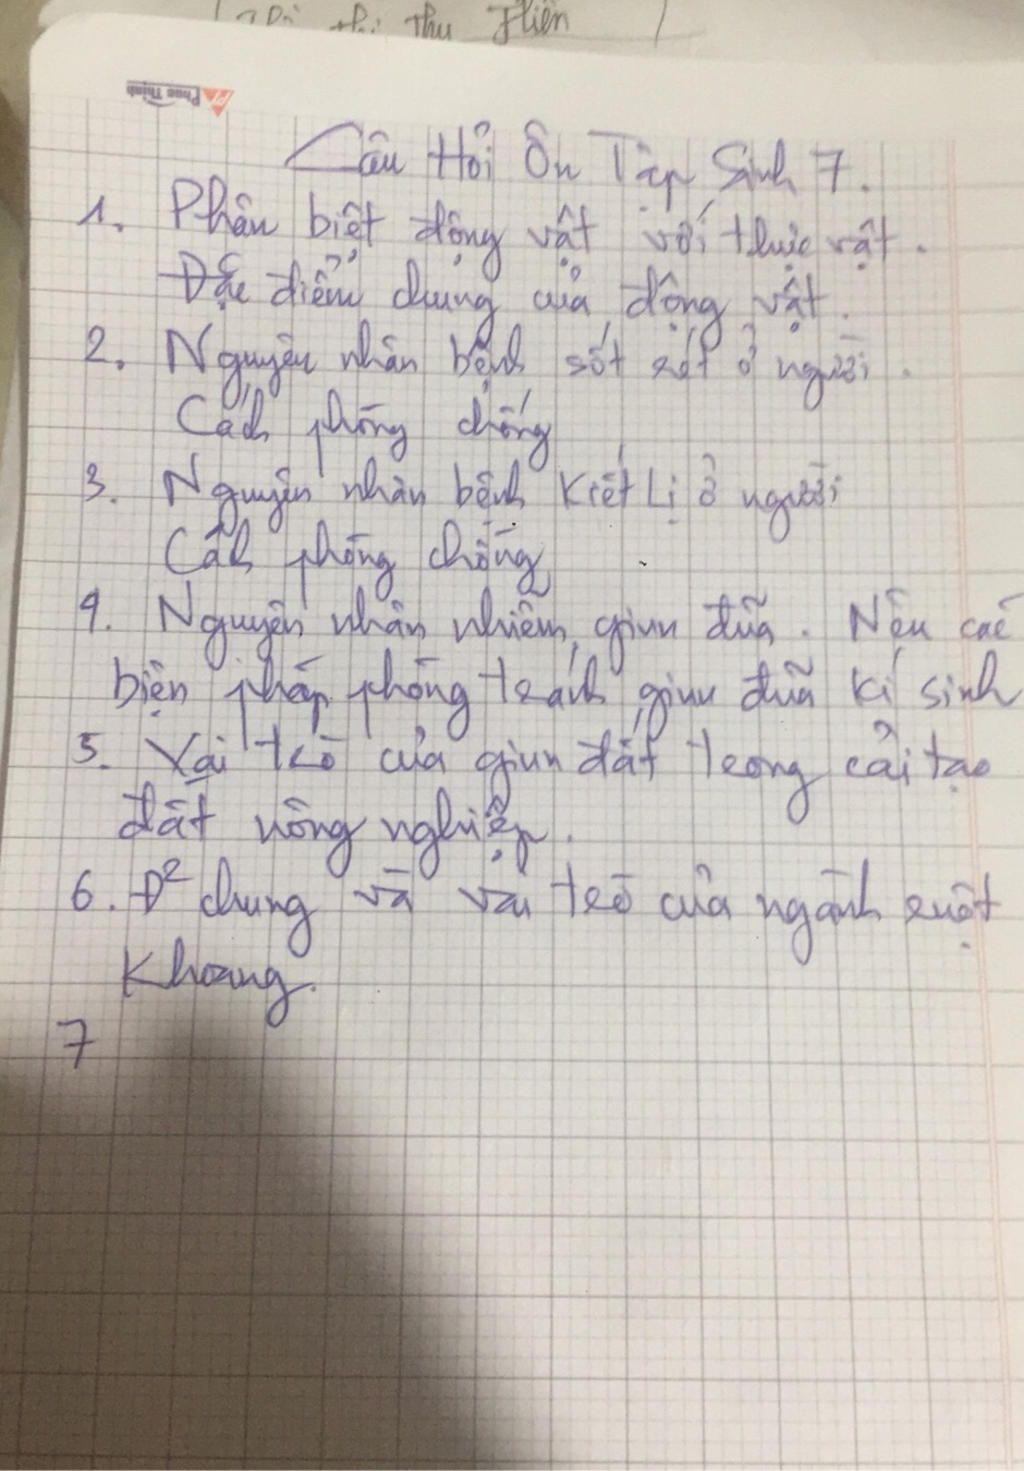 Thị Thu Hiền
Phúc Thịnh
Câu Hỏi Ôn Tập Sinh 7.
1. Phân biệt động vật với thực vật.
Đặc điểm chung của động vật.
2. Nguyên nhân bệnh sốt rét ở người.
Cách phòng chống
3. Nguyên nhân bệnh Kiết Lị ở người
Cách phòng chống
4. Nguyên nhân nhiễm giun đũa. Nêu các
biện pháp phòng tránh giun đũa kí sinh
5. Vai trò của giun đất trong cải tạo
đất nông nghiệp.
6. Đ² chung và vai trò của ngành ruột
Khoang.
7